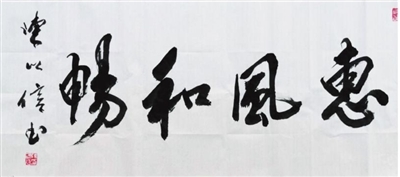 惠風和暢
陳以信書